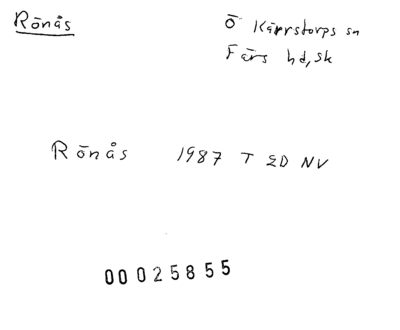 Rönås
Ö Kärrstorps sn
Färs hd, Sk
Rönås 1987 T 2D NV
00025855